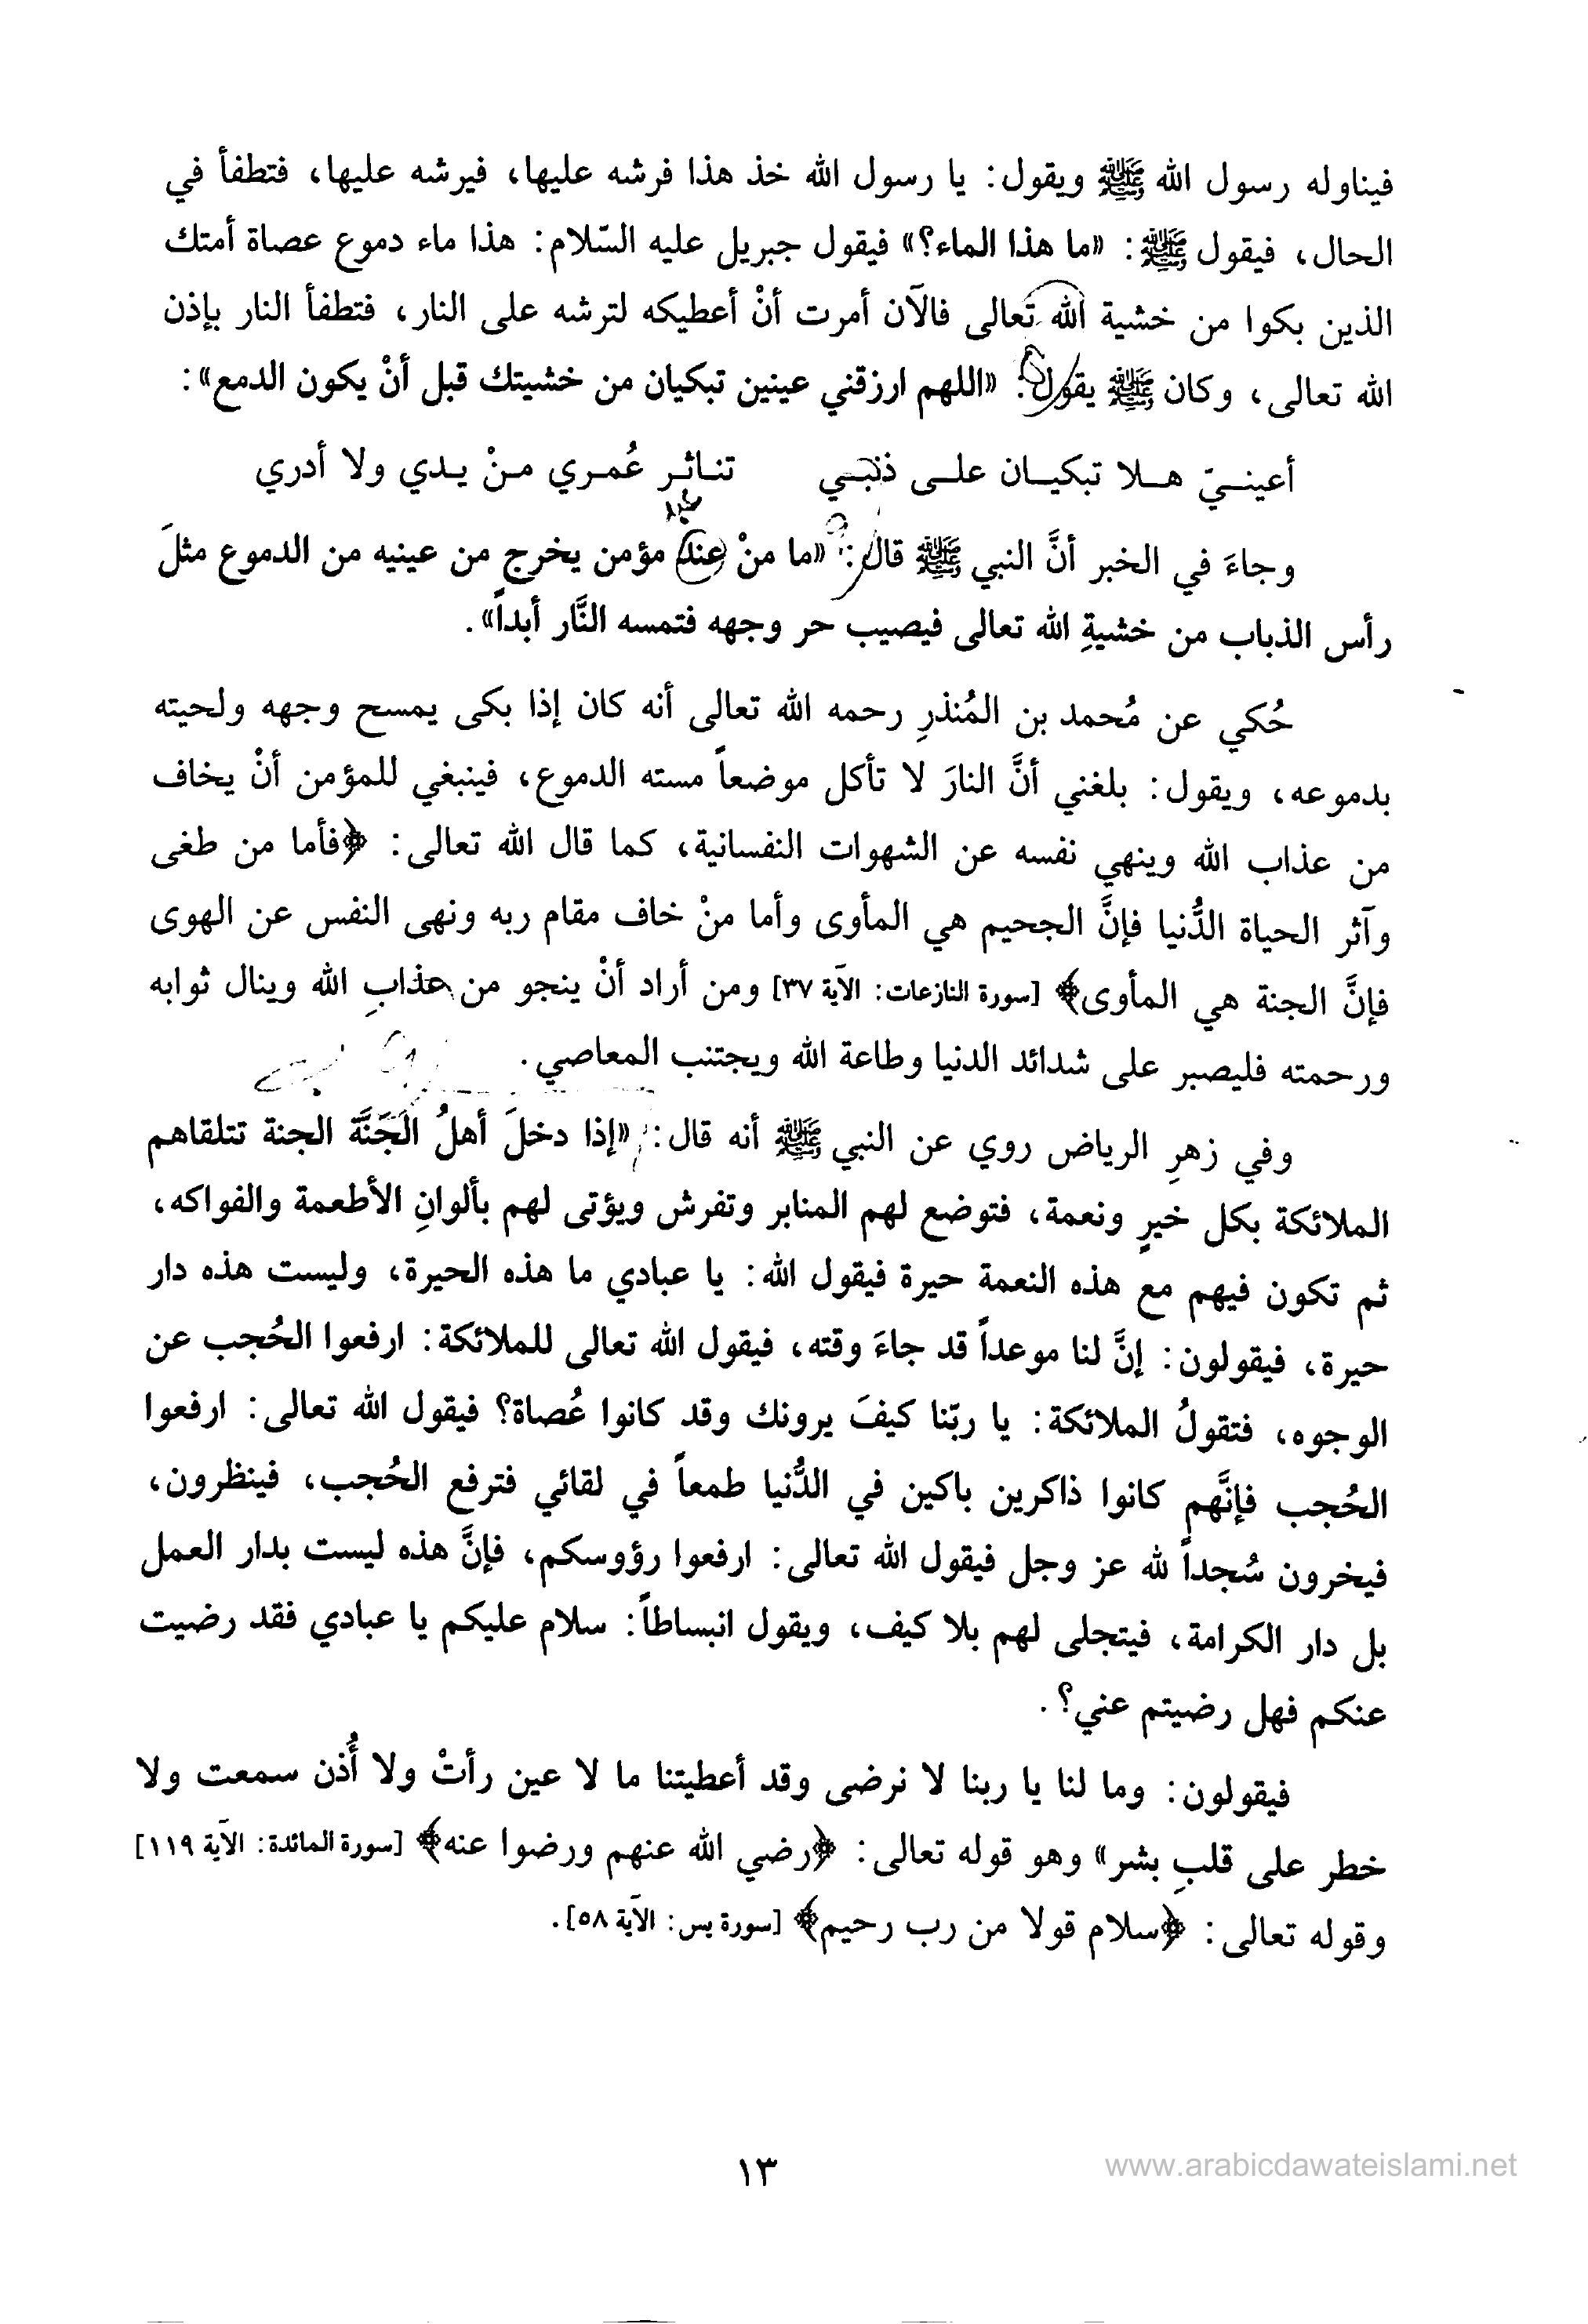 فيناوله رسول الله ﷺ ويقول: يا رسول الله خذ هذا فرشه عليها، فيرشه عليها، فتطفأ في
الحال، فيقول ﷺ: «ما هذا الماء؟» فيقول جبريل عليه السّلام: هذا ماء دموع عصاة أمتك
الذين بكوا من خشية الله تعالى فالآن أمرت أنْ أعطيكه لترشه على النار، فتطفأ النار بإذن
الله تعالى، وكان ﷺ يقول: «اللهم ارزقني عينين تبكيان من خشيتك قبل أنْ يكون الدمع»:
أعينـيّ هـلا تبكيـان علـى ذنبـي تنـاثـر عُمـري مـنْ يـدي ولا أدري
وجاءَ في الخبر أنَّ النبي ﷺ قال: «ما منْ عند مؤمن يخرج من عينيه من الدموع مثلَ
رأس الذباب من خشيةِ الله تعالى فيصيب حر وجهه فتمسه النَّار أبداً».
حُكي عن مُحمد بن المُنذرِ رحمه الله تعالى أنه كان إذا بكى يمسح وجهه ولحيته
بدموعه، ويقول: بلغني أنَّ النارَ لا تأكل موضعاً مسته الدموع، فينبغي للمؤمن أنْ يخاف
من عذاب الله وينهي نفسه عن الشهوات النفسانية، كما قال الله تعالى: ﴿فأما من طغى
وآثر الحياة الدُّنيا فإنَّ الجحيم هي المأوى وأما منْ خاف مقام ربه ونهى النفس عن الهوى
فإنَّ الجنة هي المأوى﴾ [سورة النازعات: الآية ٣٧] ومن أراد أنْ ينجو من عذابِ الله وينال ثوابه
ورحمته فليصبر على شدائد الدنيا وطاعة الله ويجتنب المعاصي.
وفي زهرِ الرياض روي عن النبي ﷺ أنه قال: «إذا دخلَ أهلُ الجَنَّة الجنة تتلقاهم
الملائكة بكل خيرٍ ونعمة، فتوضع لهم المنابر وتفرش ويؤتى لهم بألوانِ الأطعمة والفواكه،
ثم تكون فيهم مع هذه النعمة حيرة فيقول الله: يا عبادي ما هذه الحيرة، وليست هذه دار
حيرة، فيقولون: إنَّ لنا موعداً قد جاءَ وقته، فيقول الله تعالى للملائكة: ارفعوا الحُجب عن
الوجوه، فتقولُ الملائكة: يا ربّنا كيفَ يرونك وقد كانوا عُصاة؟ فيقول الله تعالى: ارفعوا
الحُجب فإنَّهم كانوا ذاكرين باكين في الدُّنيا طمعاً في لقائي فترفع الحُجب، فينظرون،
فيخرون سُجداً لله عز وجل فيقول الله تعالى: ارفعوا رؤوسكم، فإنَّ هذه ليست بدار العمل
بل دار الكرامة، فيتجلى لهم بلا كيف، ويقول انبساطاً: سلام عليكم يا عبادي فقد رضيت
عنكم فهل رضيتم عني؟.
فيقولون: وما لنا يا ربنا لا نرضى وقد أعطيتنا ما لا عين رأتْ ولا أُذن سمعت ولا
خطر على قلبِ بشر» وهو قوله تعالى: ﴿رضي الله عنهم ورضوا عنه﴾ [سورة المائدة: الآية ١١٩]
وقوله تعالى: ﴿سلام قولا من رب رحيم﴾ [سورة يس: الآية ٥٨].
١٣
www.arabicdawateislami.net